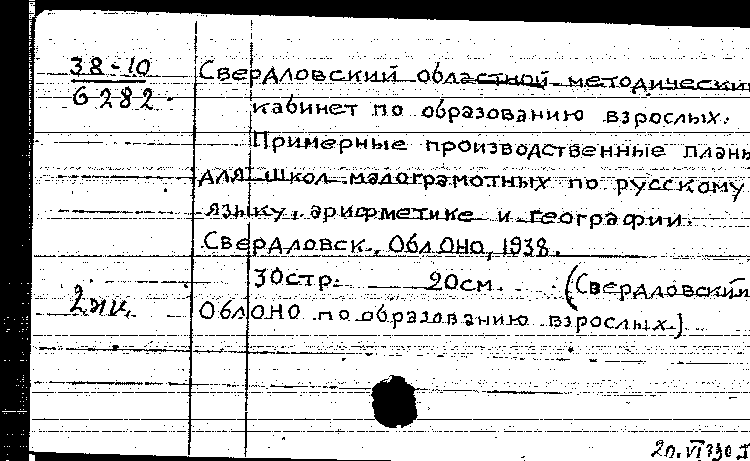 38-10
6282.
Свердловский областной методический
кабинет по образованию взрослых.
Примерные производственные планы
для школ малограмотных по русскому
языку, арифметике и географии.
Свердловск, ОблОНО, 1938.
30стр. 20см. (Свердловский
ОблОНО по образованию взрослых.)
2 эк.